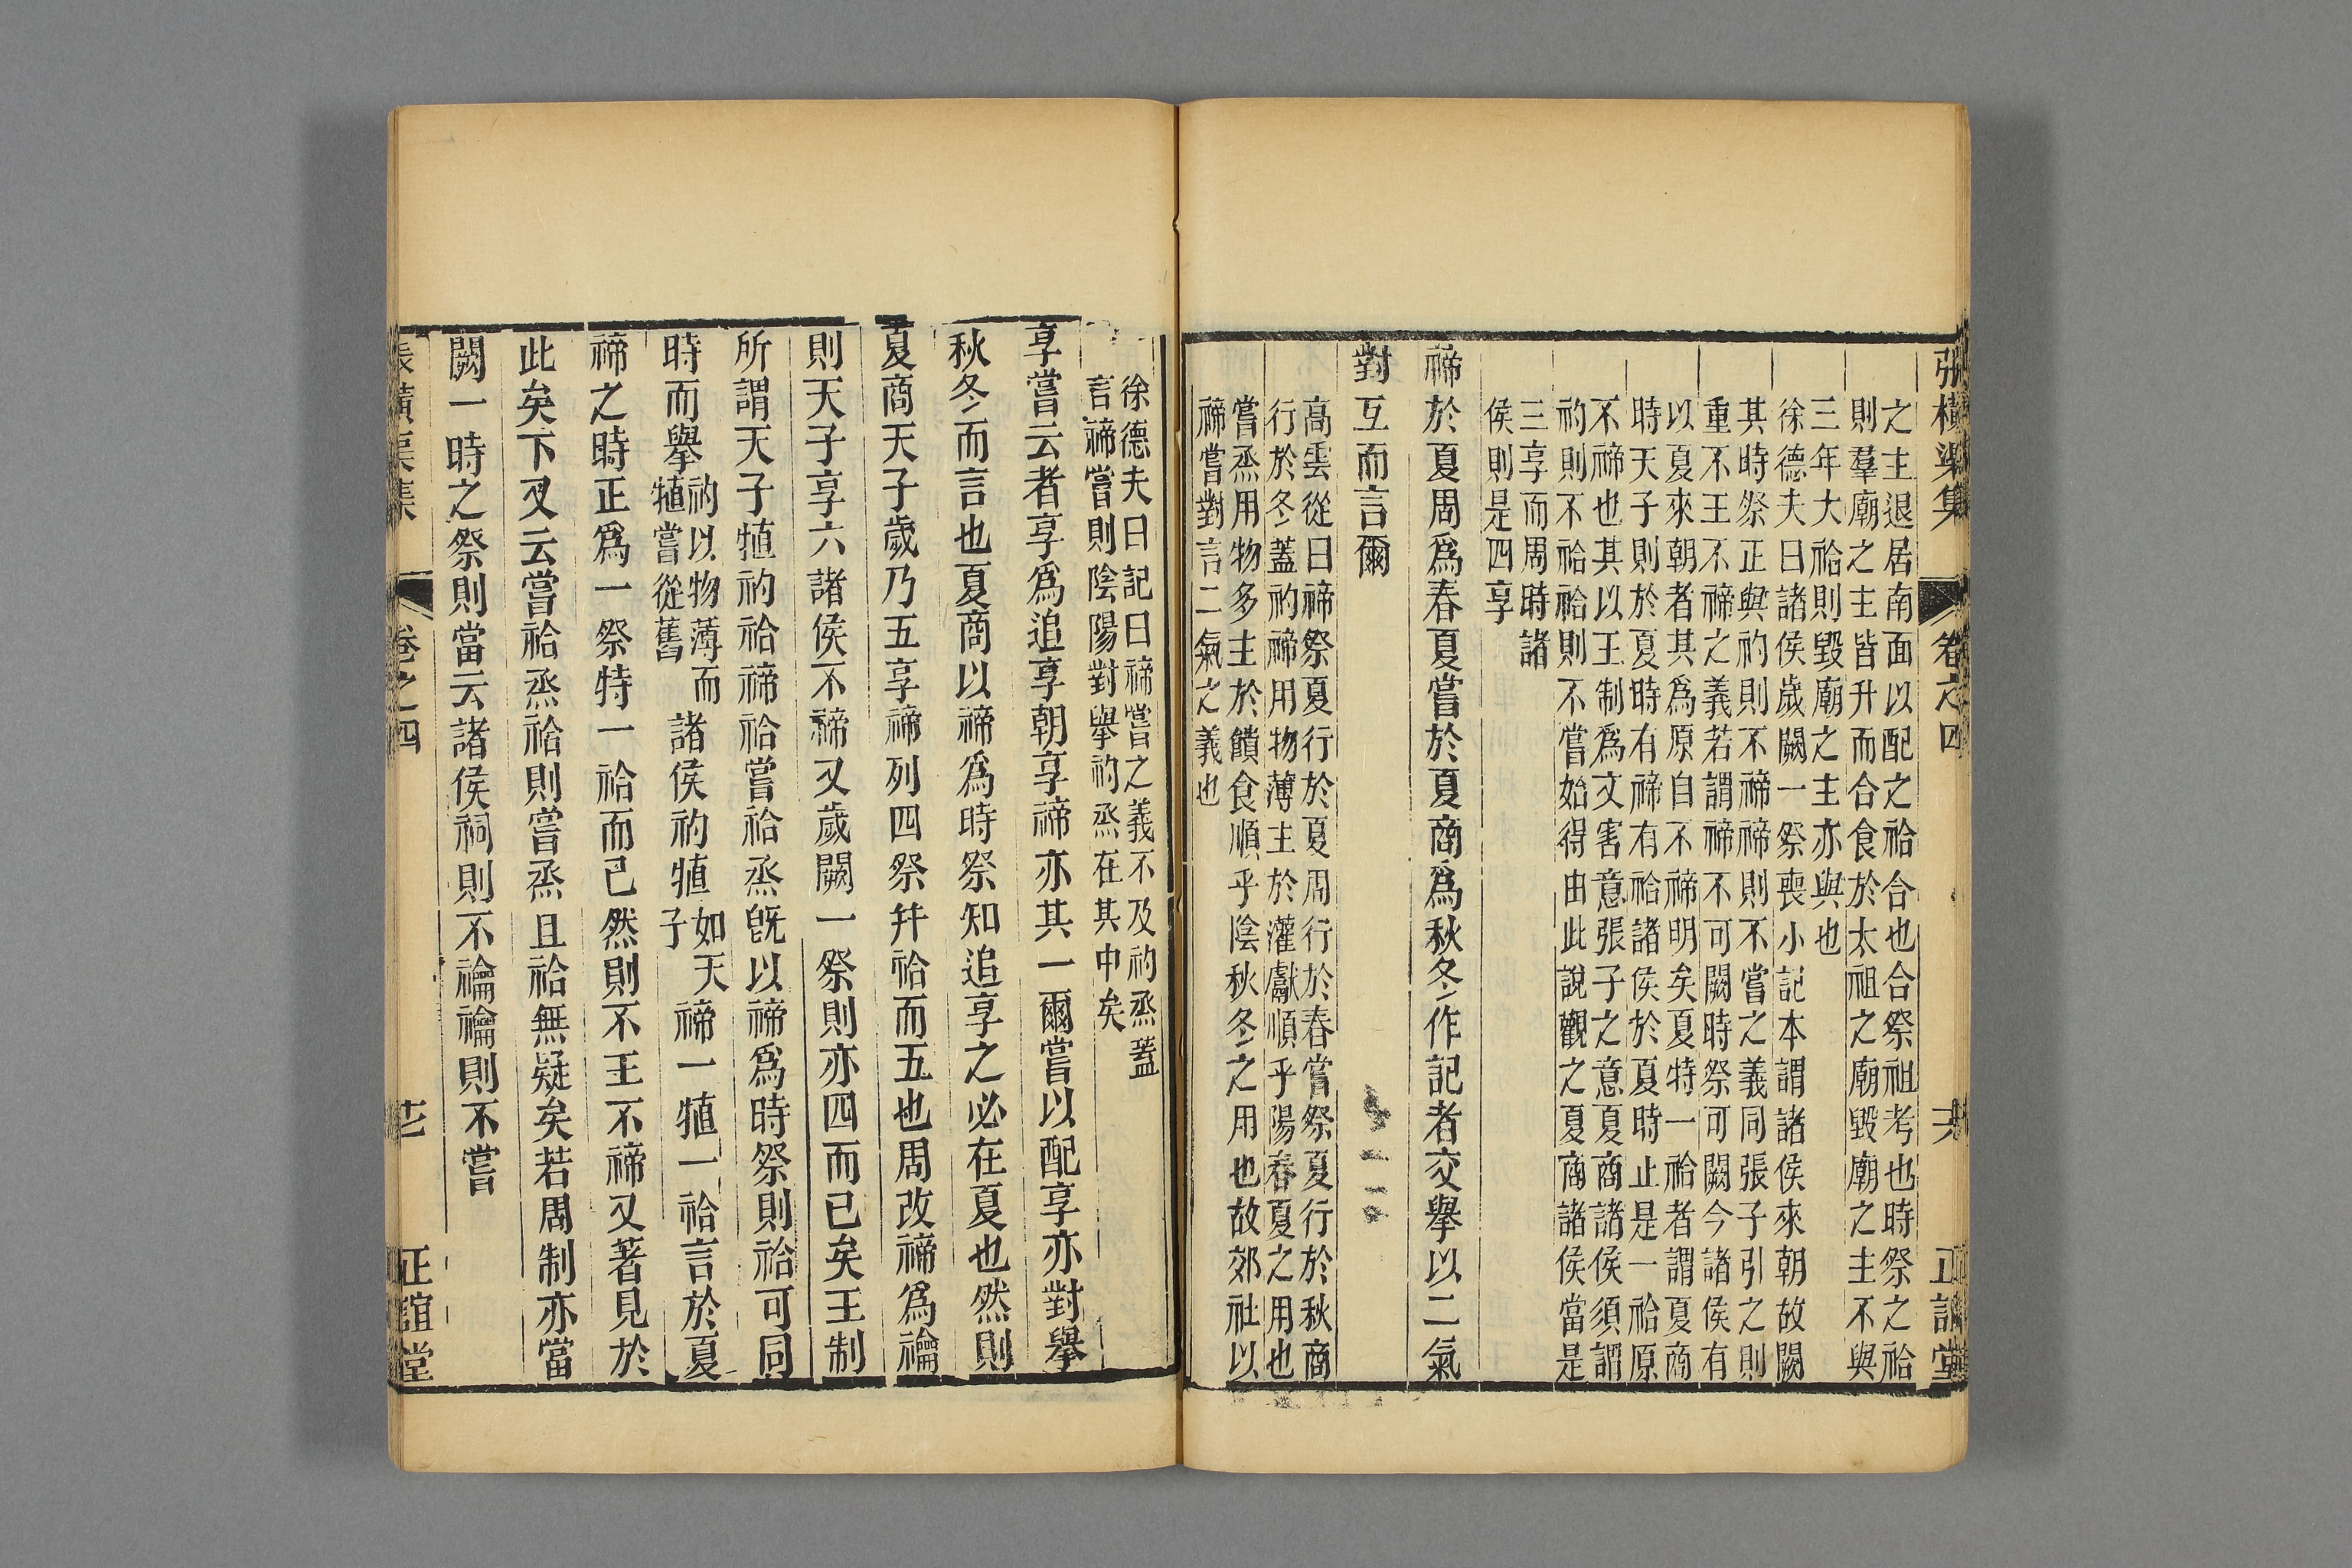 張橫渠集 卷之四 正誼堂
之主退居南面以配之祫合也合祭祖考也時祭之祫
則羣廟之主皆升而合食於太祖之廟毀廟之主不與
三年大祫則毀廟之主亦與也
徐德夫曰諸侯歲闕一祭喪小記本謂諸侯來朝故闕
其時祭正與礿則不禘禘則不嘗之義同張子引之則
重不王不禘之義若謂禘不可闕時祭可闕今諸侯有
以夏來朝者其爲原自不禘明矣夏特一祫者謂夏商
時天子則於夏時有禘有祫諸侯於夏時止是一祫原
不禘也其以王制爲文害意張子之意夏商諸侯須謂
礿則不祫祫則不嘗始得由此說觀之夏商諸侯當是
三享而周時諸
侯則是四享
禘於夏周爲春夏嘗於夏商爲秋冬作記者交舉以二氣
對互而言爾
高雲從曰禘祭夏行於夏周行於春嘗祭夏行於秋商
行於冬蓋礿禘用物薄主於灌獻順乎陽春夏之用也
嘗烝用物多主於饋食順乎陰秋冬之用也故郊社以
禘嘗對言二氣之義也
徐德夫曰記曰禘嘗之義不及礿烝蓋
言禘嘗則陰陽對舉礿烝在其中矣
享嘗云者享爲追享朝享禘亦其一爾嘗以配享亦對舉
秋冬而言也夏商以禘爲時祭知追享之必在夏也然則
夏商天子歲乃五享禘列四祭幷祫而五也周改禘爲禴
則天子享六諸侯不禘又歲闕一祭則亦四而已矣王制
所謂天子犆礿祫禘祫嘗祫烝旣以禘爲時祭則祫可同
時而舉礿以物薄而犆嘗從舊諸侯礿犆如天子禘一犆一祫言於夏
禘之時正爲一祭特一祫而已然則不王不禘又著見於
此矣下又云嘗祫烝祫則嘗烝且祫無疑矣若周制亦當
闕一時之祭則當云諸侯祠則不禴禴則不嘗
張橫渠集 卷之四 正誼堂